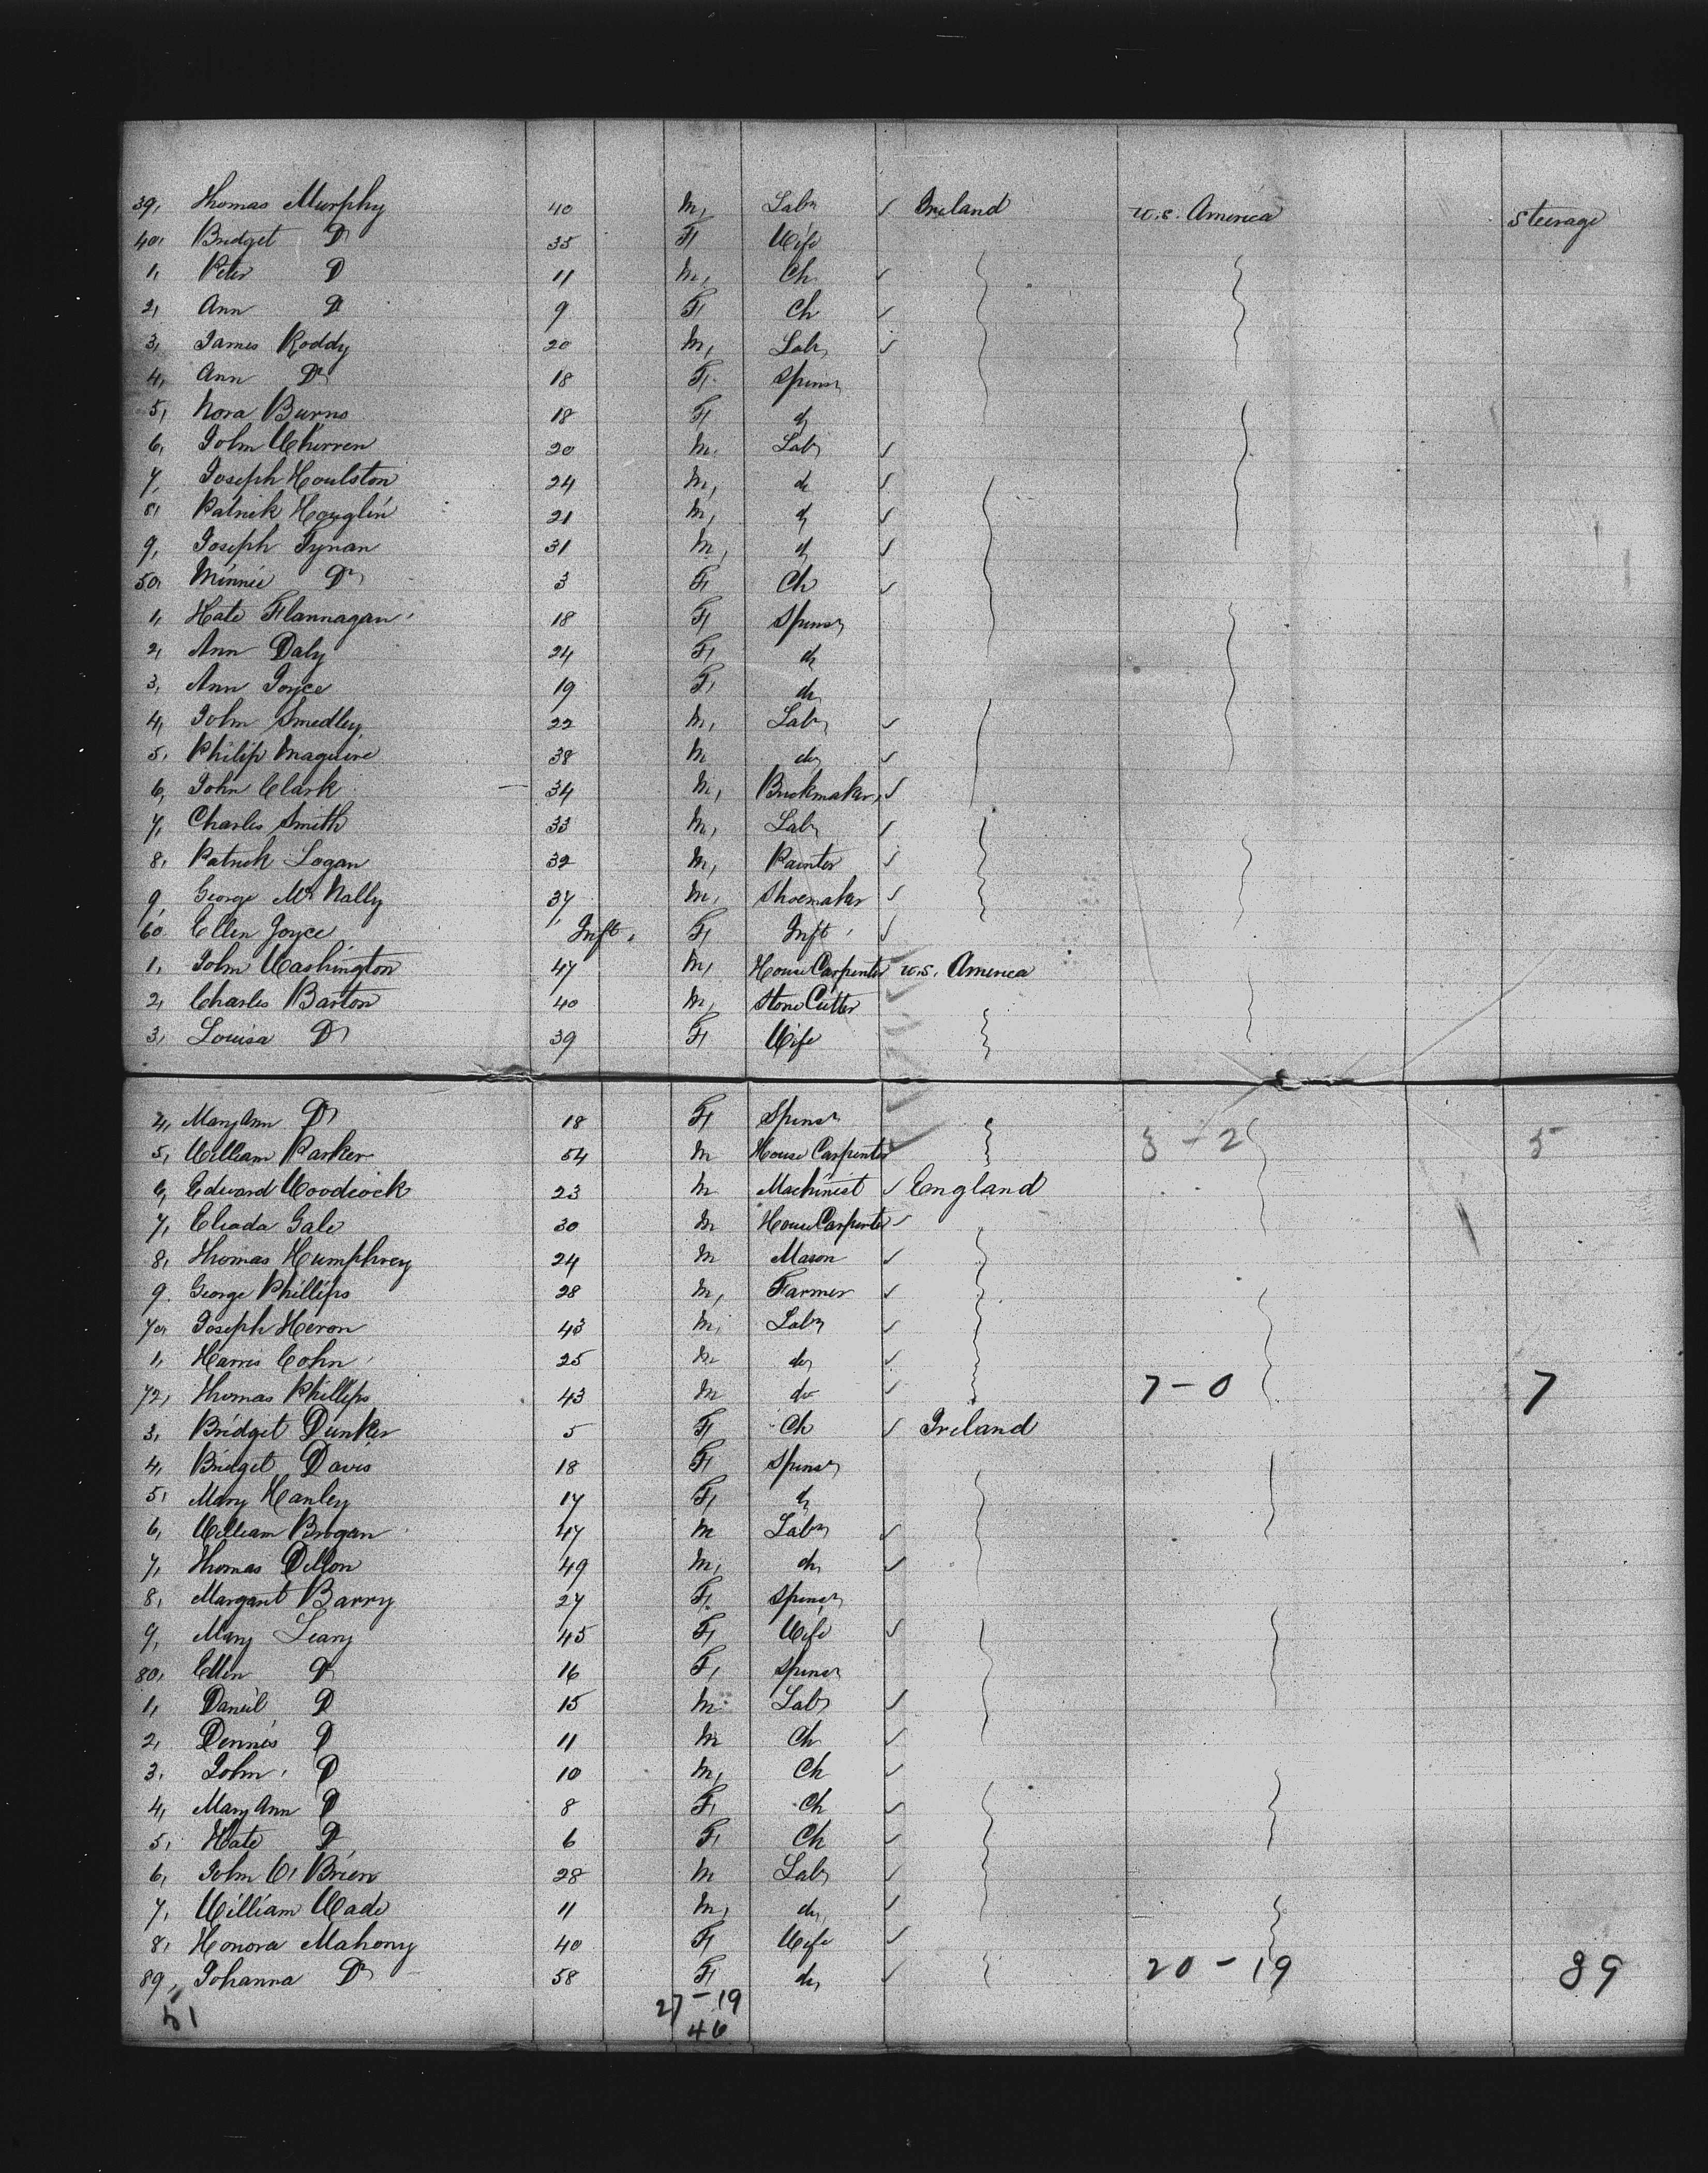 39, Thomas Murphy 40 M, Labr ✓ Ireland U.S. America Steerage
40, Bridget Do 35 F Wife
1, Peter Do 11 M, Ch ✓
2, Ann Do 9 F Ch ✓
3, James Roddy 20 M, Labr ✓
4, Ann Do 18 F Spinsr
5, Nora Burns 18 F do
6, John 20 M, Labr ✓
7, Joseph Houlston 24 M, do ✓
8, Patrick 21 M, do ✓
9, Joseph Tynan 31 M, do ✓
50, Minnie Do 3 F Ch ✓
1, Kate Flannagan 18 F Spinsr
2, Ann Daly 24 F, do
3, Ann Joyce 19 F, do
4, John Smedley 22 M, Labr ✓
5, Philip Maguire 38 M do ✓
6, John Clark 34 M, Brickmaker, ✓
7, Charles Smith 33 M, Labr ✓
8, Patrick Logan 32 M, Painter ✓
9, George McNally 37 M, Shoemaker ✓
60 Ellen Joyce Inft, F Inft ✓
1, John Washington 47 M, House Carpenter U.S. America
2, Charles Barton 40 M, Stone Cutter
3, Louisa Do 39 F Wife
4, Mary Ann Do 18 F Spinsr
5, William Parker 54 M House Carpenter 3 - 2 5
6, Edward Woodcock 23 M Machinist ✓ England
7, Gale 30 M House Carpenter ✓
8, Thomas Humphrey 24 M Mason ✓
9. George Phillips 28 M, Farmer ✓
70, Joseph Heron 43 M, Labr ✓
1, Harris Cohn 25 M do ✓
72, Thomas Phillips 43 M do ✓ 7 - 0 7
3, Bridget Dunker 5 F Ch ✓ Ireland
4, Bridget Davis 18 F Spinsr
5, Mary Hanley 17 F, do
6, William Brogan 47 M Labr ✓
7, Thomas Dillon 49 M, do ✓
8, Margaret Barry 27 F. Spinsr
9, Mary Leary 45 F, Wife ✓
80, Ellen Do 16 F, Spinsr
1, Daniel Do 15 M Labr ✓
2, Dennis Do 11 M Ch ✓
3, John Do 10 M, Ch ✓
4, Mary Ann Do 8 F, Ch ✓
5, Kate Do 6 F, Ch ✓
6, John O'Brien 28 M Labr ✓
7, William Wade 11 M, do, ✓
8, Honora Mahony 40 F Wife ✓
89, Johanna Do 58 F do, ✓ 20 - 19 39
51 27 - 19
46